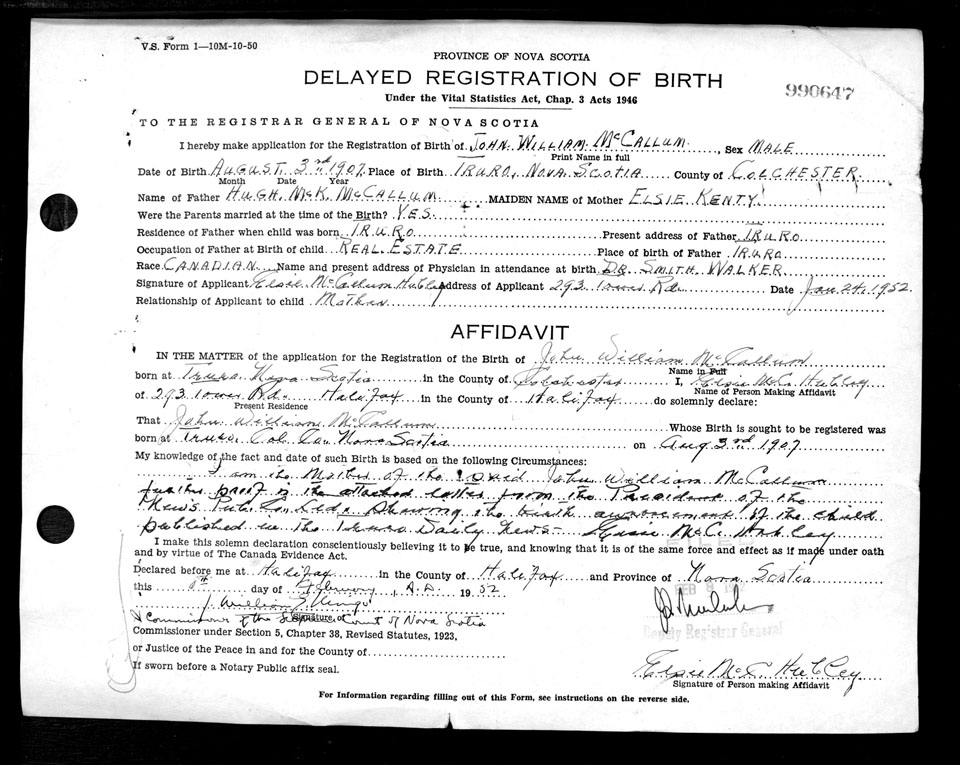 V.S. Form 1—10M-10-50
PROVINCE OF NOVA SCOTIA
DELAYED REGISTRATION OF BIRTH
990647
Under the Vital Statistics Act, Chap. 3 Acts 1946
TO THE REGISTRAR GENERAL OF NOVA SCOTIA
I hereby make application for the Registration of Birth of JOHN WILLIAM McCALLUM, Sex MALE
Print Name in full
Date of Birth AUGUST 3rd 1907 Place of Birth TRURO, NOVA SCOTIA County of COLCHESTER
Month Date Year
Name of Father HUGH McK. McCALLUM MAIDEN NAME of Mother ELSIE KENTY
Were the Parents married at the time of the Birth? YES
Residence of Father when child was born TRURO Present address of Father TRURO
Occupation of Father at Birth of child REAL ESTATE Place of birth of Father TRURO
Race CANADIAN Name and present address of Physician in attendance at birth DR SMITH WALKER
Signature of Applicant Elsie McCallum Hubley Address of Applicant 293 Tower Rd. Date Jan. 24, 1952
Relationship of Applicant to child Mother
AFFIDAVIT
IN THE MATTER of the application for the Registration of the Birth of John William McCallum
Name in Full
born at Truro Nova Scotia in the County of Colchester I, Elsie McC. Hubley
Name of Person Making Affidavit
of 293 Tower Rd. Halifax in the County of Halifax do solemnly declare:
Present Residence
That John William McCallum Whose Birth is sought to be registered was
born at Truro Col. Co. Nova Scotia on Aug 3rd 1907
My knowledge of the fact and date of such Birth is based on the following Circumstances:
I am the Mother of the said John William McCallum
further proof is the attached letter from the President of the
News Pub. Co. Ltd. showing the birth announcement of the child
published in The Truro Daily News— Elsie McC. Hubley
I make this solemn declaration conscientiously believing it to be true, and knowing that it is of the same force and effect as if made under oath
and by virtue of The Canada Evidence Act.
FILED
Declared before me at Halifax in the County of Halifax and Province of Nova Scotia
this day of February A.D. 1952
FEB
J. William
A Commissioner of the Supreme Court of Nova Scotia
Signature of
Deputy Registrar General
Commissioner under Section 5, Chapter 38, Revised Statutes, 1923,
or Justice of the Peace in and for the County of
If sworn before a Notary Public affix seal.
Elsie McC. Hubley
Signature of Person making Affidavit
For Information regarding filling out of this Form, see instructions on the reverse side.